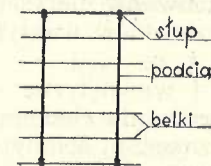 słup
podcią
belki